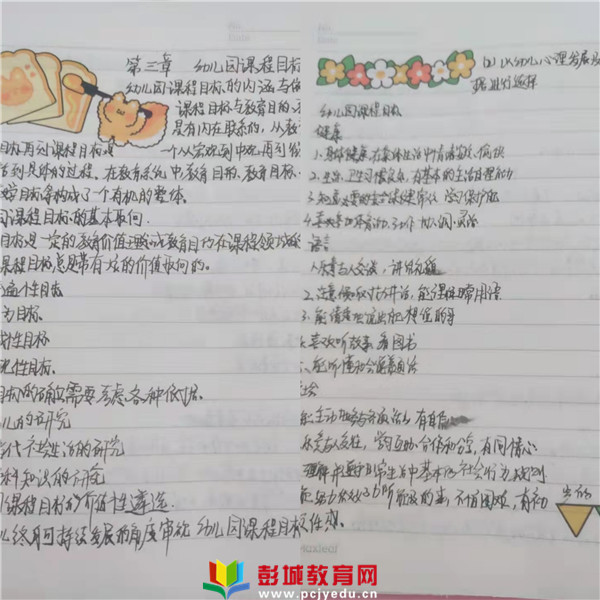 第三章 幼儿园课程目标
幼儿园课程目标的内涵与
课程目标与教育目的
是有内在联系的，从教
目标再到课程目标是一个从宏观到中观再到
的过程。在教育系统中，教育目的，教育目标、
目标等构成了个有机的整体。
课程目标的基本取向
目标是一定的教育价值
在课程领域
课程目标总是带有一定的价值取向的。
普遍性目标
目标
性目标
性目标
目标的确定需要考虑各种依据
儿的研究
当代社会生活的研究
学科知识的研究
课程目标的价值性筛选
终身可持续发展的角度审视幼儿园课程目标
以幼儿心理发展
据进行选择
幼儿园课程目标
健康
1.身体健康，在集体生活中情绪安定、愉快
2.生活、卫生习惯良好，有基本的生活自理能力
3.知道必要的安全保健常识，学习保护自己
4.喜欢参加体育活动，动作协调、灵活
语言
与人交谈，讲话礼貌
2.注意倾听对方讲话，能理解日常用语
3.能清楚地说出自己想说的事
喜欢听故事、看图书
能听懂和会说普通话
能主动地参与各项活动，有自信心
乐意与人交往，学习互助、合作和分享，有同情心
理解并遵守日常生活中基本的社会行为规则
能努力做好力所能及的事，不怕困难，有初
任感。
彭城教育网
www.pcjyedu.cn